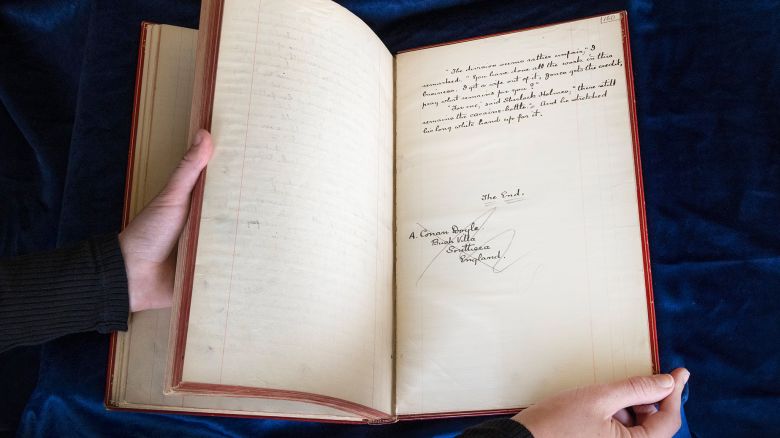 160
"The division seems rather unfair," I
remarked. "You have done all the work in this
business. I get a wife out of it, Jones gets the credit,
pray what remains for you?"
"For me," said Sherlock Holmes, "there still
remains the cocaine-bottle." And he stretched
his long white hand up for it.
The End.
A. Conan Doyle
Bush Villa
Southsea
England.